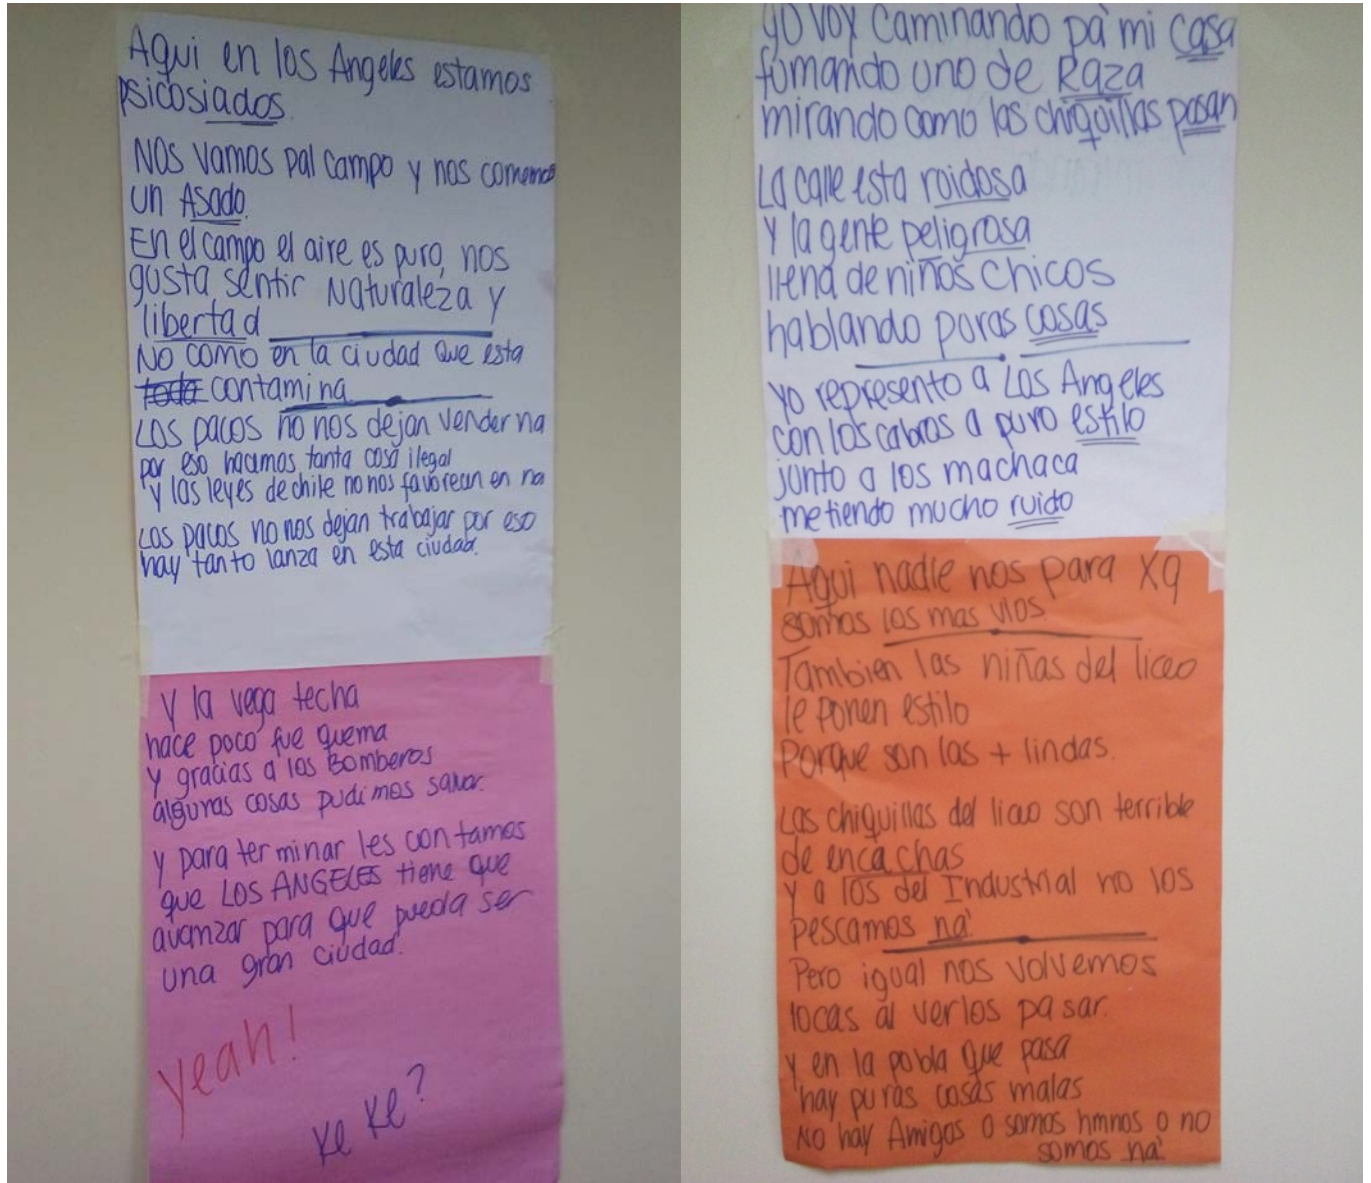 Aqui en los Angeles estamos
psicosiados.
Nos vamos pal campo y nos comemos
un Asado.
En el campo el aire es puro, nos
gusta sentir Naturaleza y
libertad
No como en la ciudad que esta
toda contamina
Los pacos no nos dejan vender na
por eso hacemos tanta cosa ilegal
y las leyes de chile no nos favorecen en na
Los pacos no nos dejan trabajar por eso
hay tanto lanza en esta ciudad.
y la vega techa
hace poco fue quema
y gracias a los Bomberos
algunas cosas pudimos salvar.
y para terminar les contamos
que LOS ANGELES tiene que
avanzar para que pueda ser
una gran ciudad.
yeah!
Ke Ke?
yo voy caminando pa mi casa
fumando uno de Raza
mirando como las chiquillas pasan
La calle esta ruidosa
Y la gente peligrosa
llena de niños chicos
hablando puras cosas
Yo represento a Los Angeles
con los cabros a puro estilo
junto a los machaca
metiendo mucho ruido
Aqui nadie nos para xq
somos los mas vios.
Tambien las niñas del liceo
le ponen estilo
Porque son las + lindas.
Las chiquillas del liceo son terrible
de encachas
Y a los del Industrial no los
pescamos na'.
Pero igual nos volvemos
locas al verlos pasar.
y en la pobla que pasa
hay puras cosas malas
No hay Amigos o somos hmnos o no
somos na'